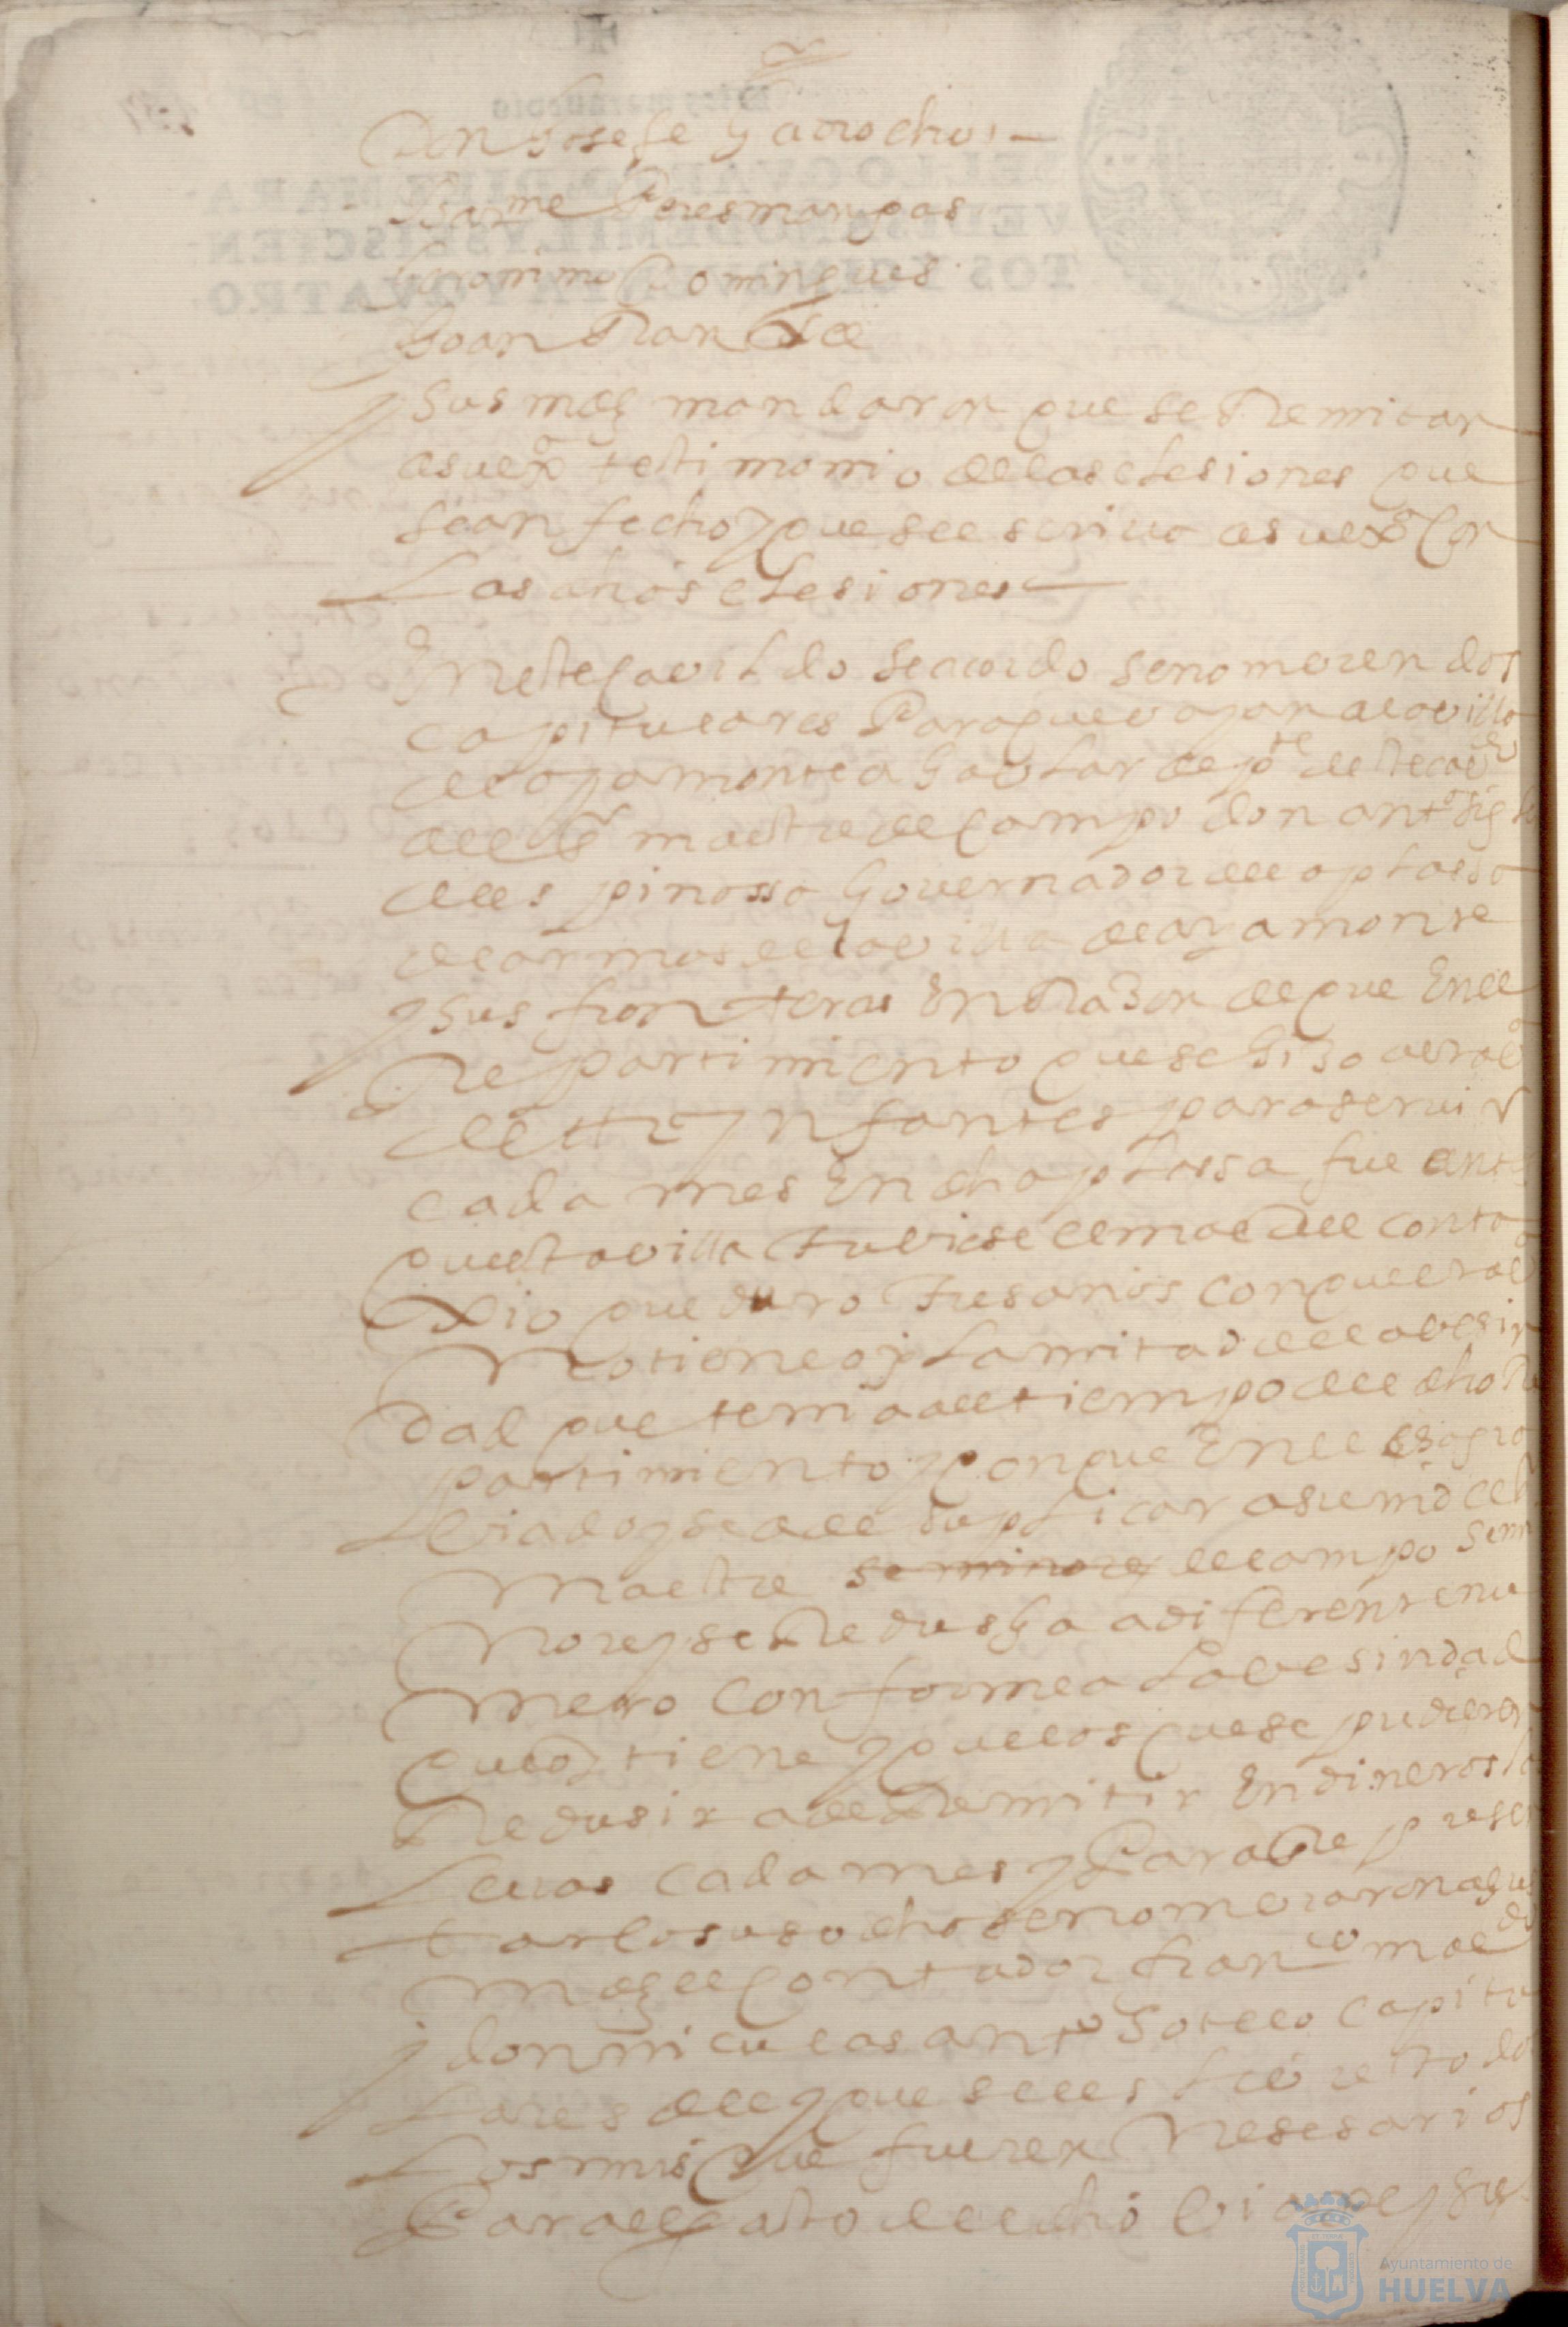 Don Josefe Garrocho
Bar.me Peres manpas
Geronimo Domingues
Joan Fran.co de
y sus mds mandaron que se Remitan
a su ex.a testimonio de las elesiones que
sean fecho y que se escriva a su ex.a Con
Las dhas elesiones
En este Cavildo se acordo se nomvren dos
capitulares Para que vayan a la villa
de ayamonte a hablar de p.te deste cav.do
al s.r maestre de Campo don ant.o
de espinossa Governador de la plassa
de armas de la villa de ayamonte
y sus fronteras En Rason de que En el
Repartimiento que se hiso
de ynfantes para servir
cada mes En dha plassa fue antes
questa villa tubiese el mal del conta
xio que duro tres años con que
No tiene oy La mitad de la vesin
dad que tenia al tiempo del dho Re
partimiento y Con que En el
y se a de suplicar a su md el
Maestre de campo
More y se Redusga a diferente nu
mero Conforme a La vesindad
que oy tiene y que los que se pudieren
Redusir a de Remitir En dineros
cada mes y Para Represen
tar lo susodho se nomvraron a sus
mds el Contador fran.co
y don niculas ant.o Sotelo capitu
Lares del y que se les
Los mrs que fueren Nesesarios
Para el gasto del dho viaje y su
Ayuntamiento de
HUELVA